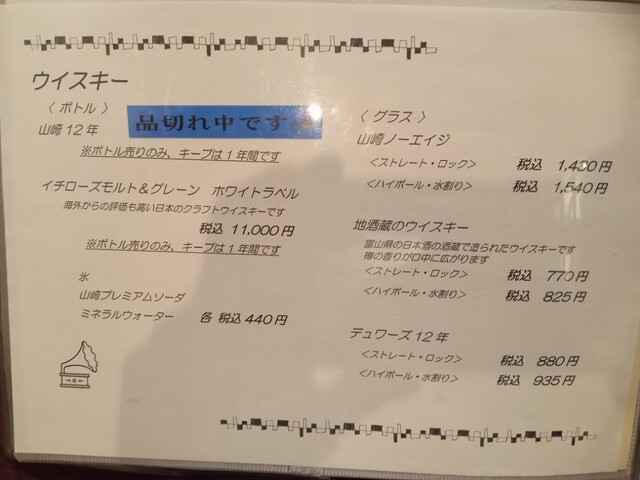 ウイスキー
〈 ボトル 〉
山崎12年
品切れ中です
※ボトル売りのみ、キープは1年間です
イチローズモルト＆グレーン ホワイトラベル
海外からの評価も高い日本のクラフトウイスキーです
税込 11,000円
※ボトル売りのみ、キープは1年間です
氷
山崎プレミアムソーダ
ミネラルウォーター 各 税込 440円
〈 グラス 〉
山崎ノーエイジ
＜ストレート・ロック＞ 税込 1,430円
＜ハイボール・水割り＞ 税込 1,540円
地酒蔵のウイスキー
富山県の日本酒の酒蔵で造られたウイスキーです
樽の香りが口中に広がります
＜ストレート・ロック＞ 税込 770円
＜ハイボール・水割り＞ 税込 825円
デュワーズ12年
＜ストレート・ロック＞ 税込 880円
＜ハイボール・水割り＞ 税込 935円